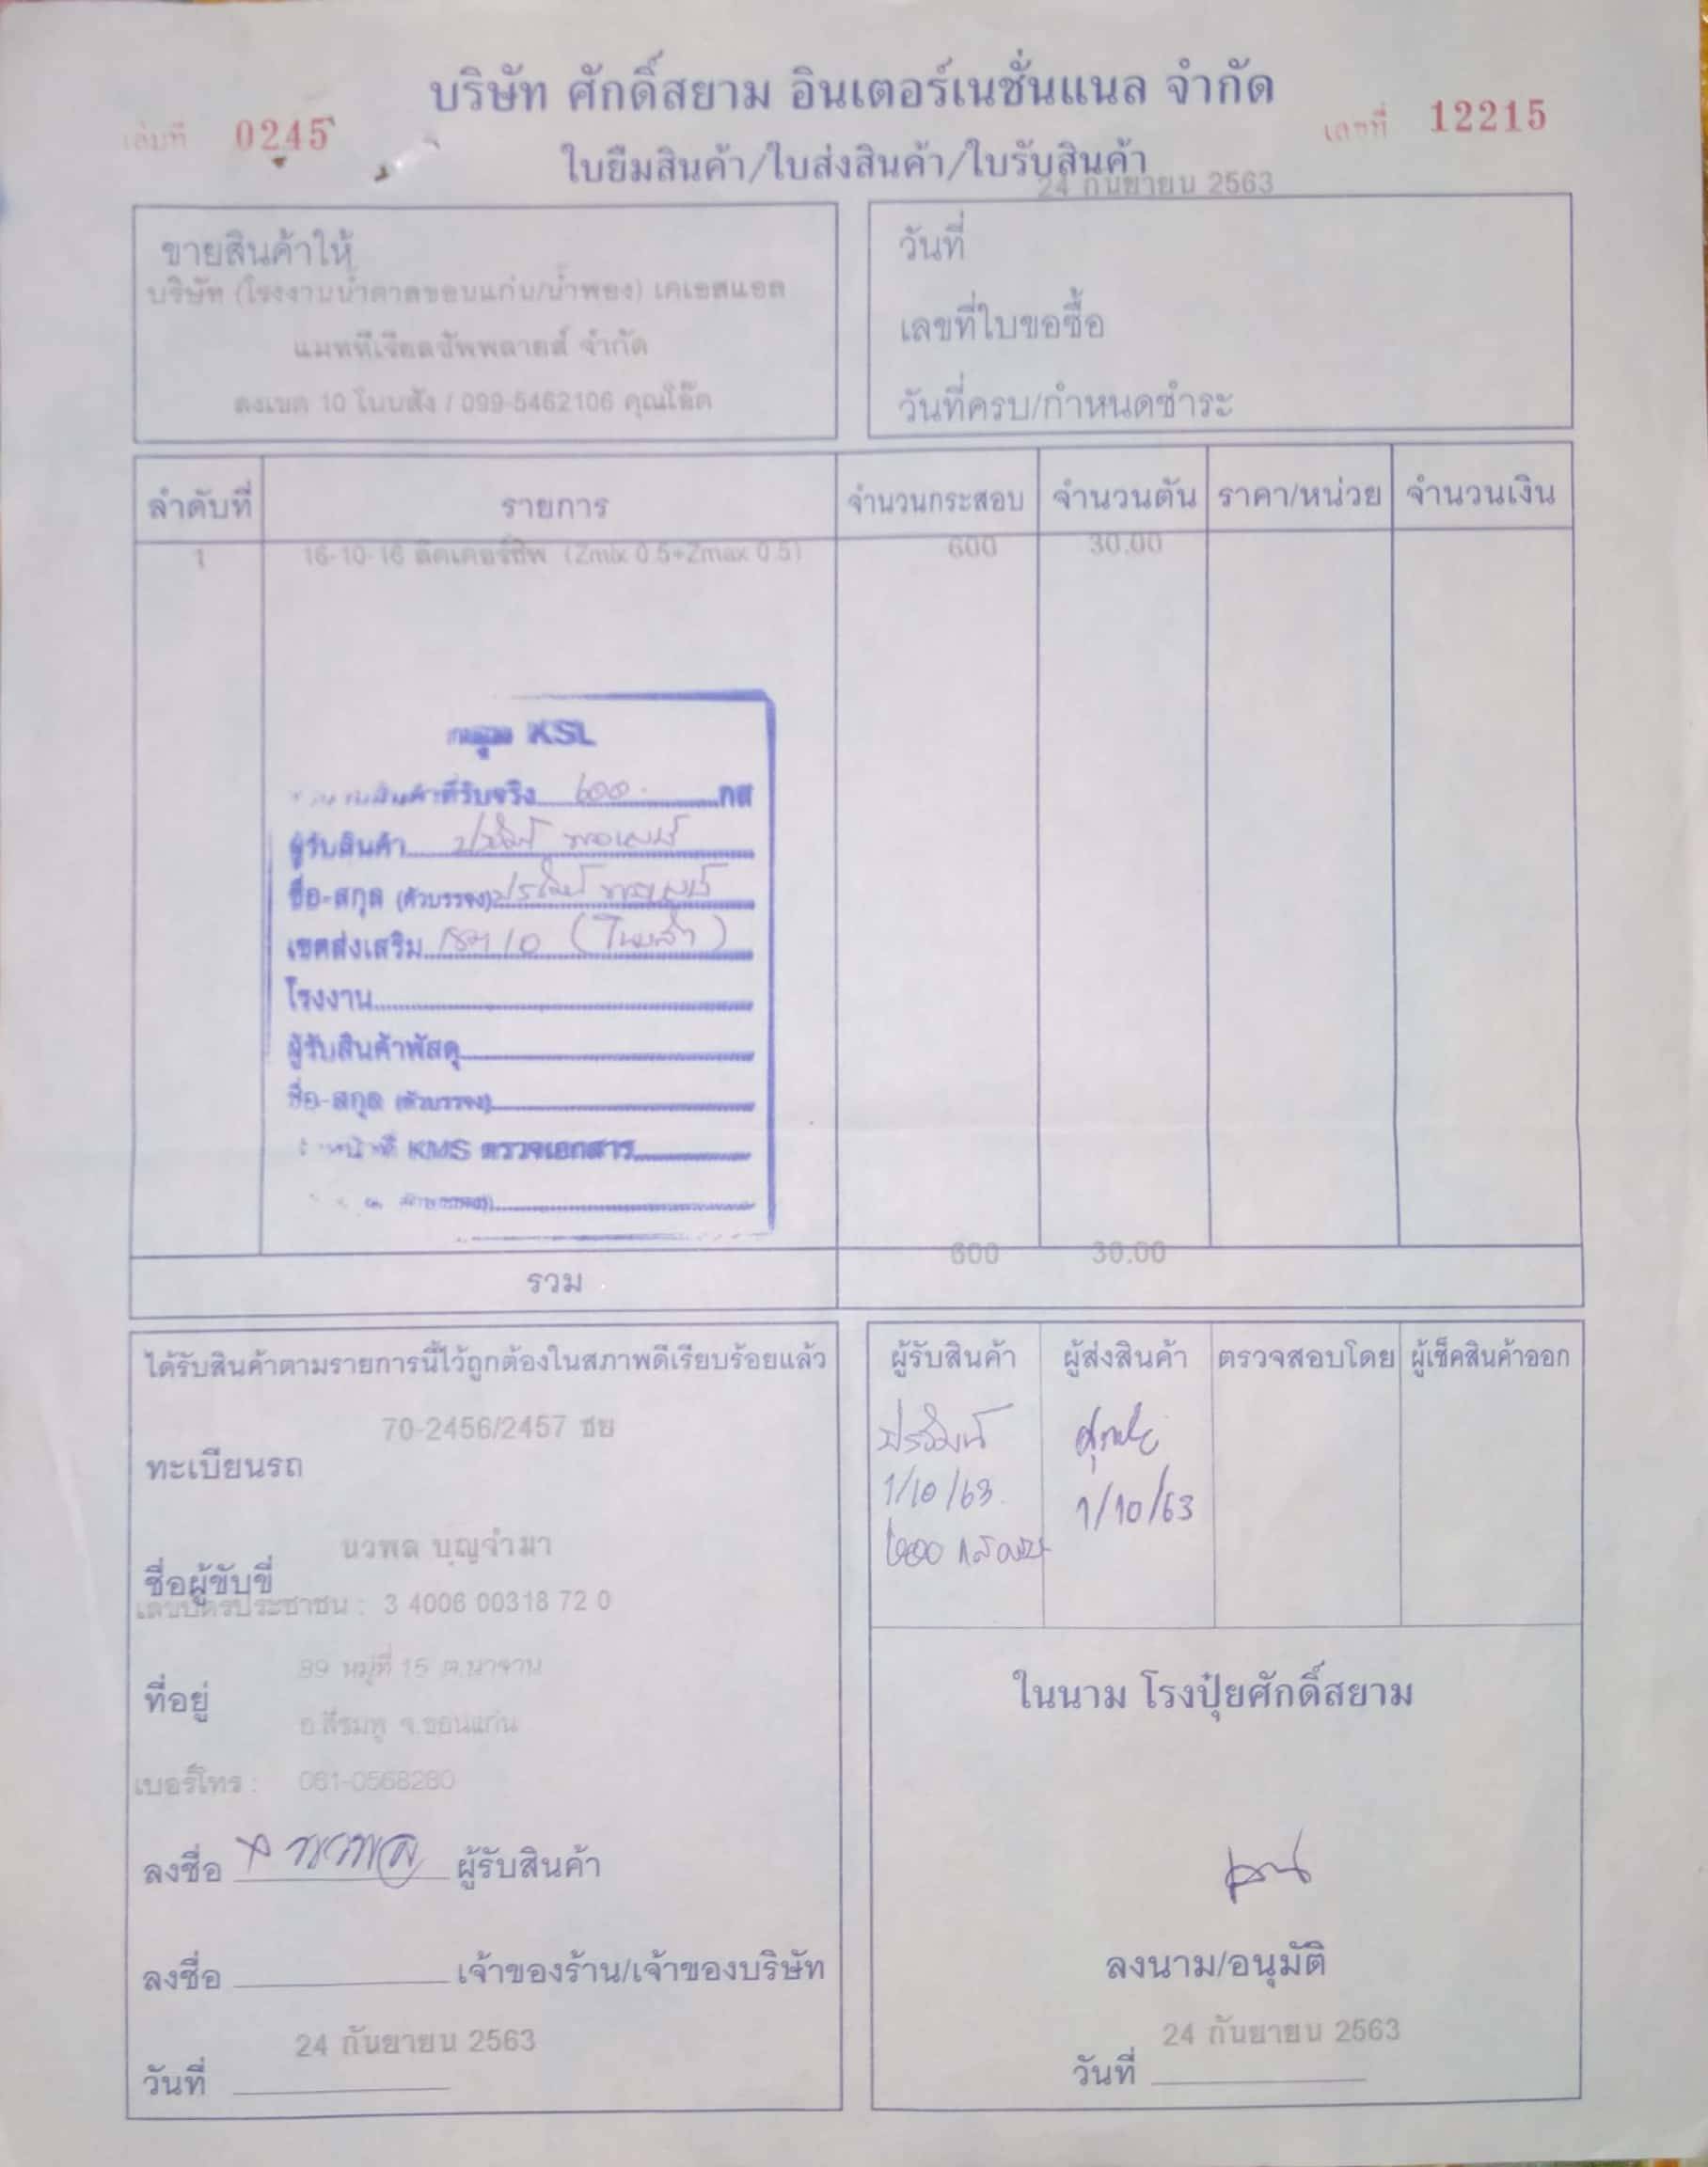 บริษัท ศักดิ์สยาม อินเตอร์เนชั่นแนล จำกัด
เล่มที่ 0245
เลขที่ 12215
ใบยืมสินค้า/ใบส่งสินค้า/ใบรับสินค้า
24 กันยายน 2563
ขายสินค้าให้
บริษัท (โรงงานน้ำตาลขอนแก่น/น้ำพอง) เคเอสแอล
แมททีเรียลซัพพลายส์ จำกัด
10 โนนสัง / 099-5462106 คุณโอ๊ต
วันที่
เลขที่ใบขอซื้อ
วันที่ครบ/กำหนดชำระ
ลำดับที่ รายการ จำนวนกระสอบ จำนวนตัน ราคา/หน่วย จำนวนเงิน
1 16-10-16 (Zmix 0.5+Zmax 0.5) 600 30.00
KSL
สินค้าที่รับจริง 600 กส
ผู้รับสินค้า
ชื่อ-สกุล (ตัวบรรจง)
เขตส่งเสริม 10
โรงงาน
ผู้รับสินค้าพัสดุ
ชื่อ-สกุล (ตัวบรรจง)
KMS ตรวจเอกสาร
รวม 600 30.00
ได้รับสินค้าตามรายการนี้ไว้ถูกต้องในสภาพดีเรียบร้อยแล้ว
70-2456/2457 ชย
ทะเบียนรถ
นวพล บุญจำมา
ชื่อผู้ขับขี่
เลขบัตรประชาชน : 3 4006 00318 72 0
99 หมู่ที่ 15 ต.นาจาน
ที่อยู่
อ.สีชมพู จ.ขอนแก่น
เบอร์โทร : 061-0568280
ลงชื่อ นวพล ผู้รับสินค้า
ลงชื่อ เจ้าของร้าน/เจ้าของบริษัท
24 กันยายน 2563
วันที่
ผู้รับสินค้า ผู้ส่งสินค้า ตรวจสอบโดย ผู้เช็คสินค้าออก
1/10/63 1/10/63
600 กระสอบ
ในนาม โรงปุ๋ยศักดิ์สยาม
ลงนาม/อนุมัติ
24 กันยายน 2563
วันที่